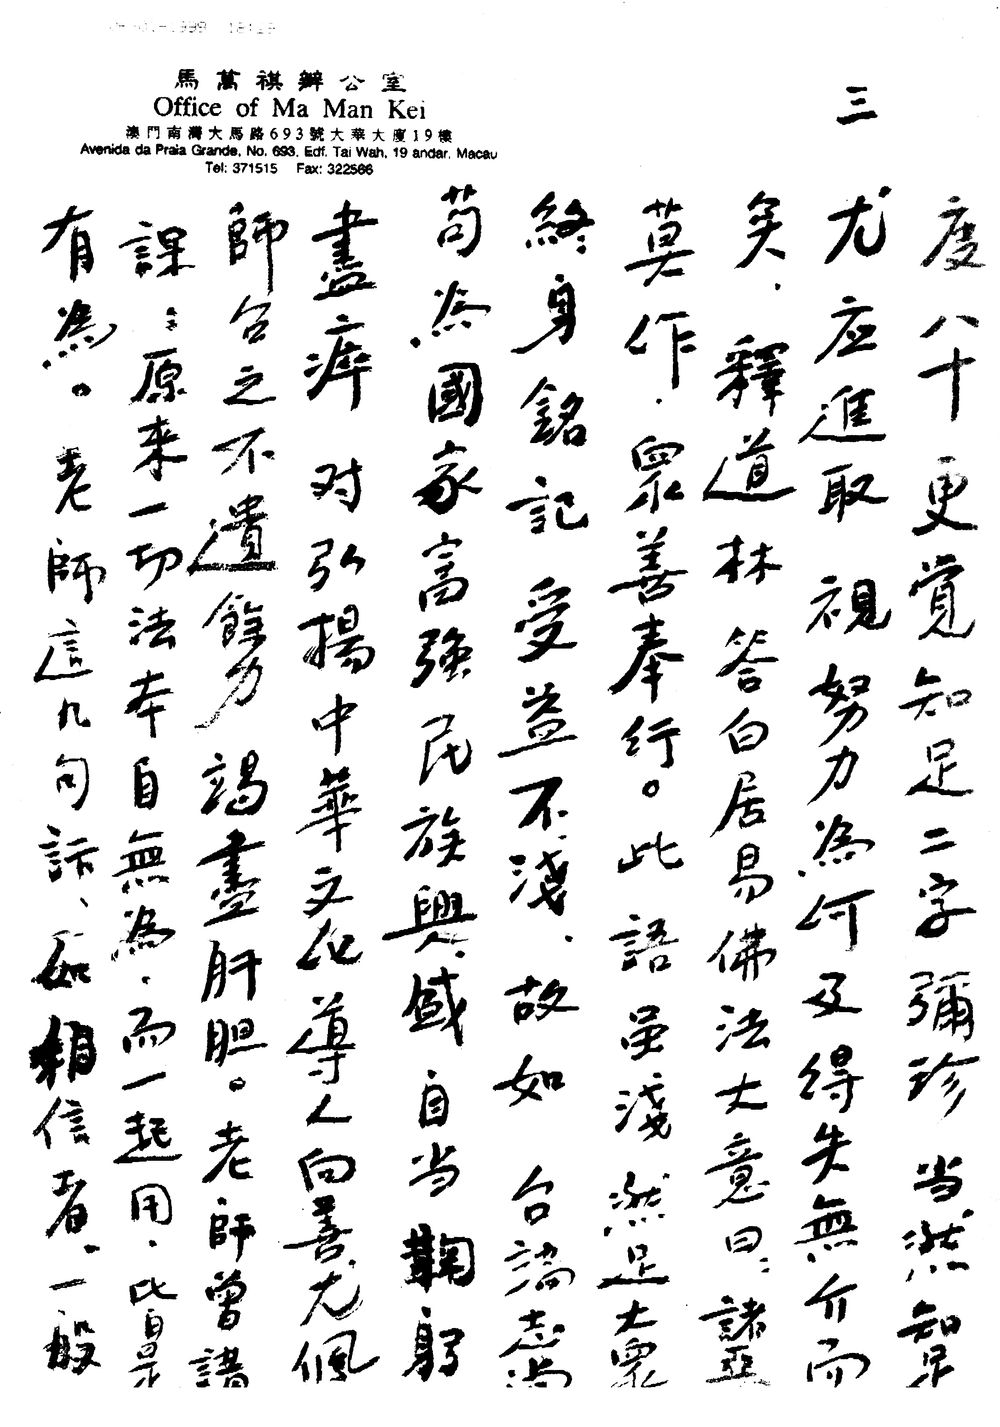 馬萬祺辦公室
Office of Ma Man Kei
澳門南灣大馬路693號大華大廈19樓
Avenida da Praia Grande, No. 693, Edf. Tai Wah, 19 andar, Macau
Tel: 371515 Fax: 322566
三
度八十更觉知足二字彌珍当然知足
尤应進取視努力為何及得失無介而
矣、釋道林答白居易佛法大意曰:諸惡
莫作、眾善奉行。此語虽淺然足大眾
終身銘記受益不淺、故如台論志尚
苟為國家富強民族興盛自当鞠躬
盡瘁对弘揚中華文化導人向善尤佩
師台之不遺餘力竭盡肝胆。老師曾諸
課:原来一切法本自無為、而一起用、此自是
有為。老師這九句話、如相信者、一般